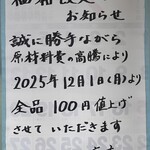 価格改定の
お知らせ
誠に勝手ながら
原材料費の高騰により
2025年12月1日(月)より
全品100円値上げ
させていただきます